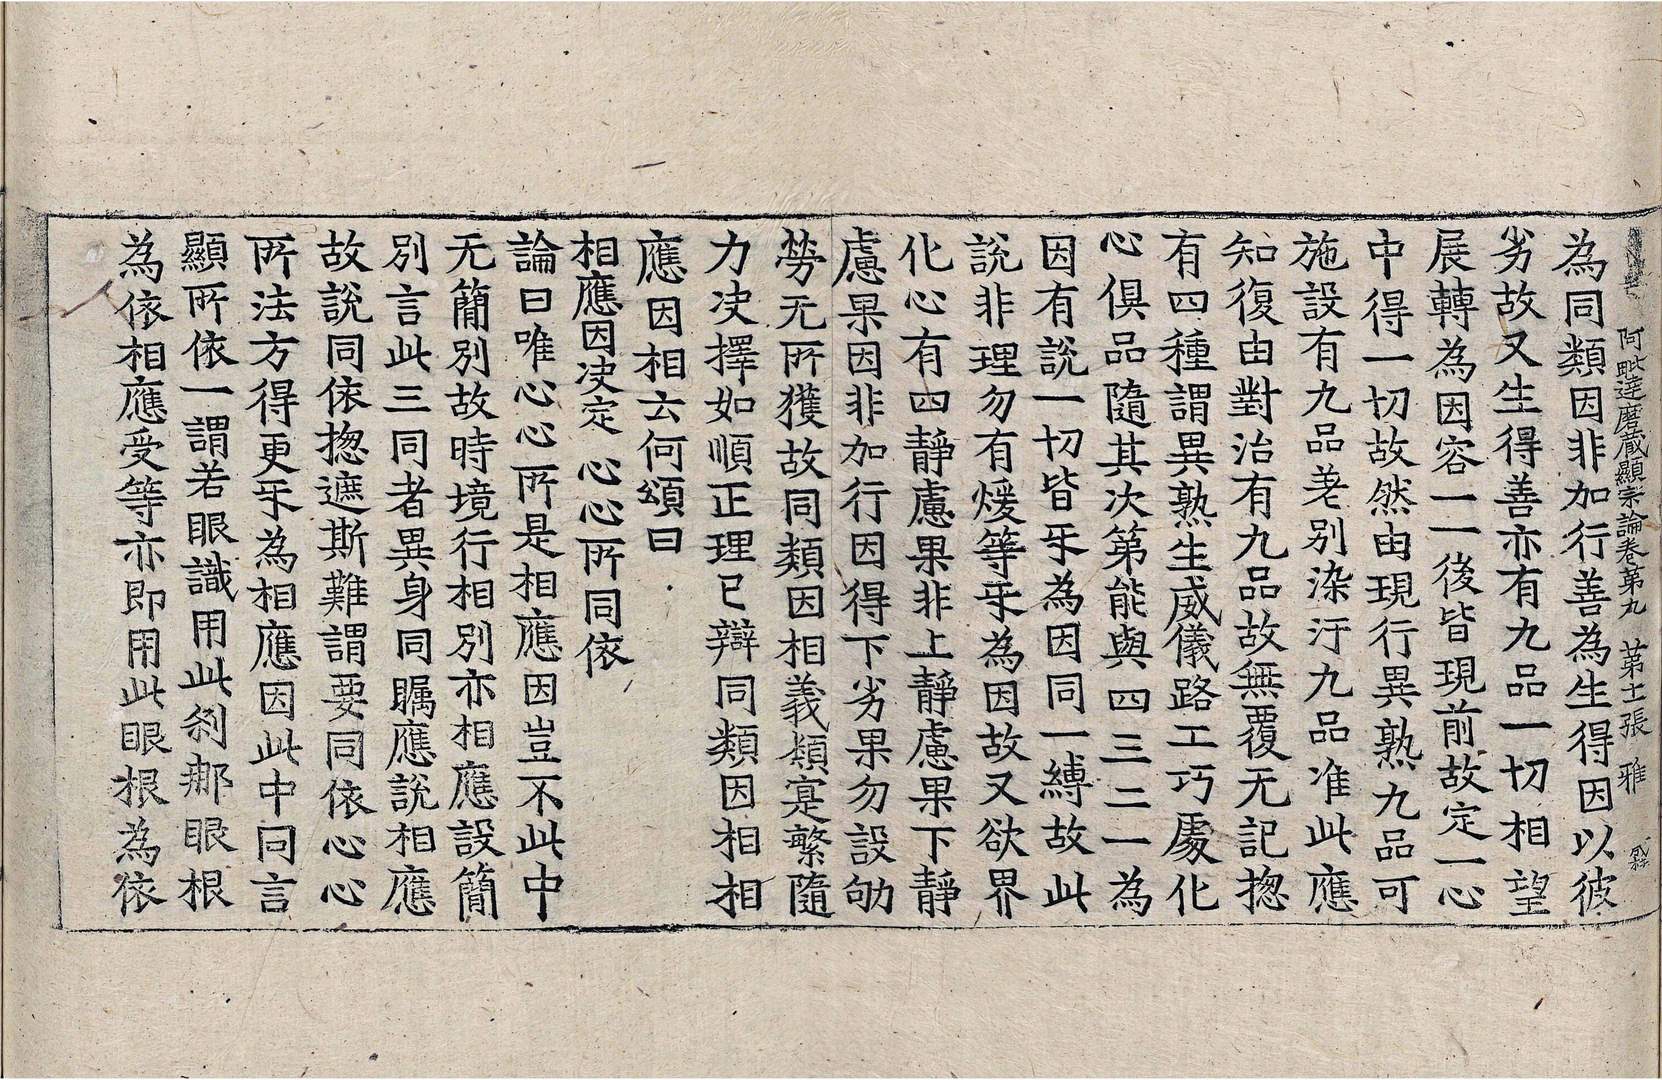 阿毗達磨蔵顯宗論卷第九 苐十二張 雅
為同類因非加行善為生得因以彼
劣故又生得善亦有九品一切相望
展轉為因容一一後皆現前故定一心
中得一切故然由現行異熟九品可
施設有九品差别染汙九品准此應
知復由對治有九品故無覆无記揔
有四種謂異熟生威儀路工巧處化
心俱品隨其次第能與四三二一為
因有說一切皆㸦為因同一縛故此
說非理勿有煖等㸦為因故又欲界
化心有四靜慮果非上靜慮果下靜
慮果因非加行因得下劣果勿設劬
勞无所獲故同類因相義類寔繁隨
力决擇如順正理已辯同類因相相
應因相云何頌曰
相應因决定 心心所同依
論曰唯心心所是相應因豈不此中
无簡别故時境行相别亦相應設簡
别言此三同者異身同矚應說相應
故說同依揔遮斯難謂要同依心心
所法方得更㸦為相應因此中同言
顯所依一謂若眼識用此刹那眼根
為依相應受等亦即用此眼根為依